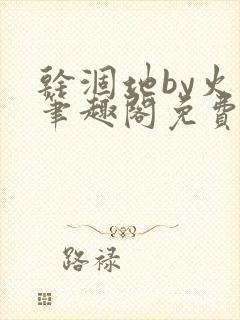 干涸地by火
笔趣阁免费
路禄